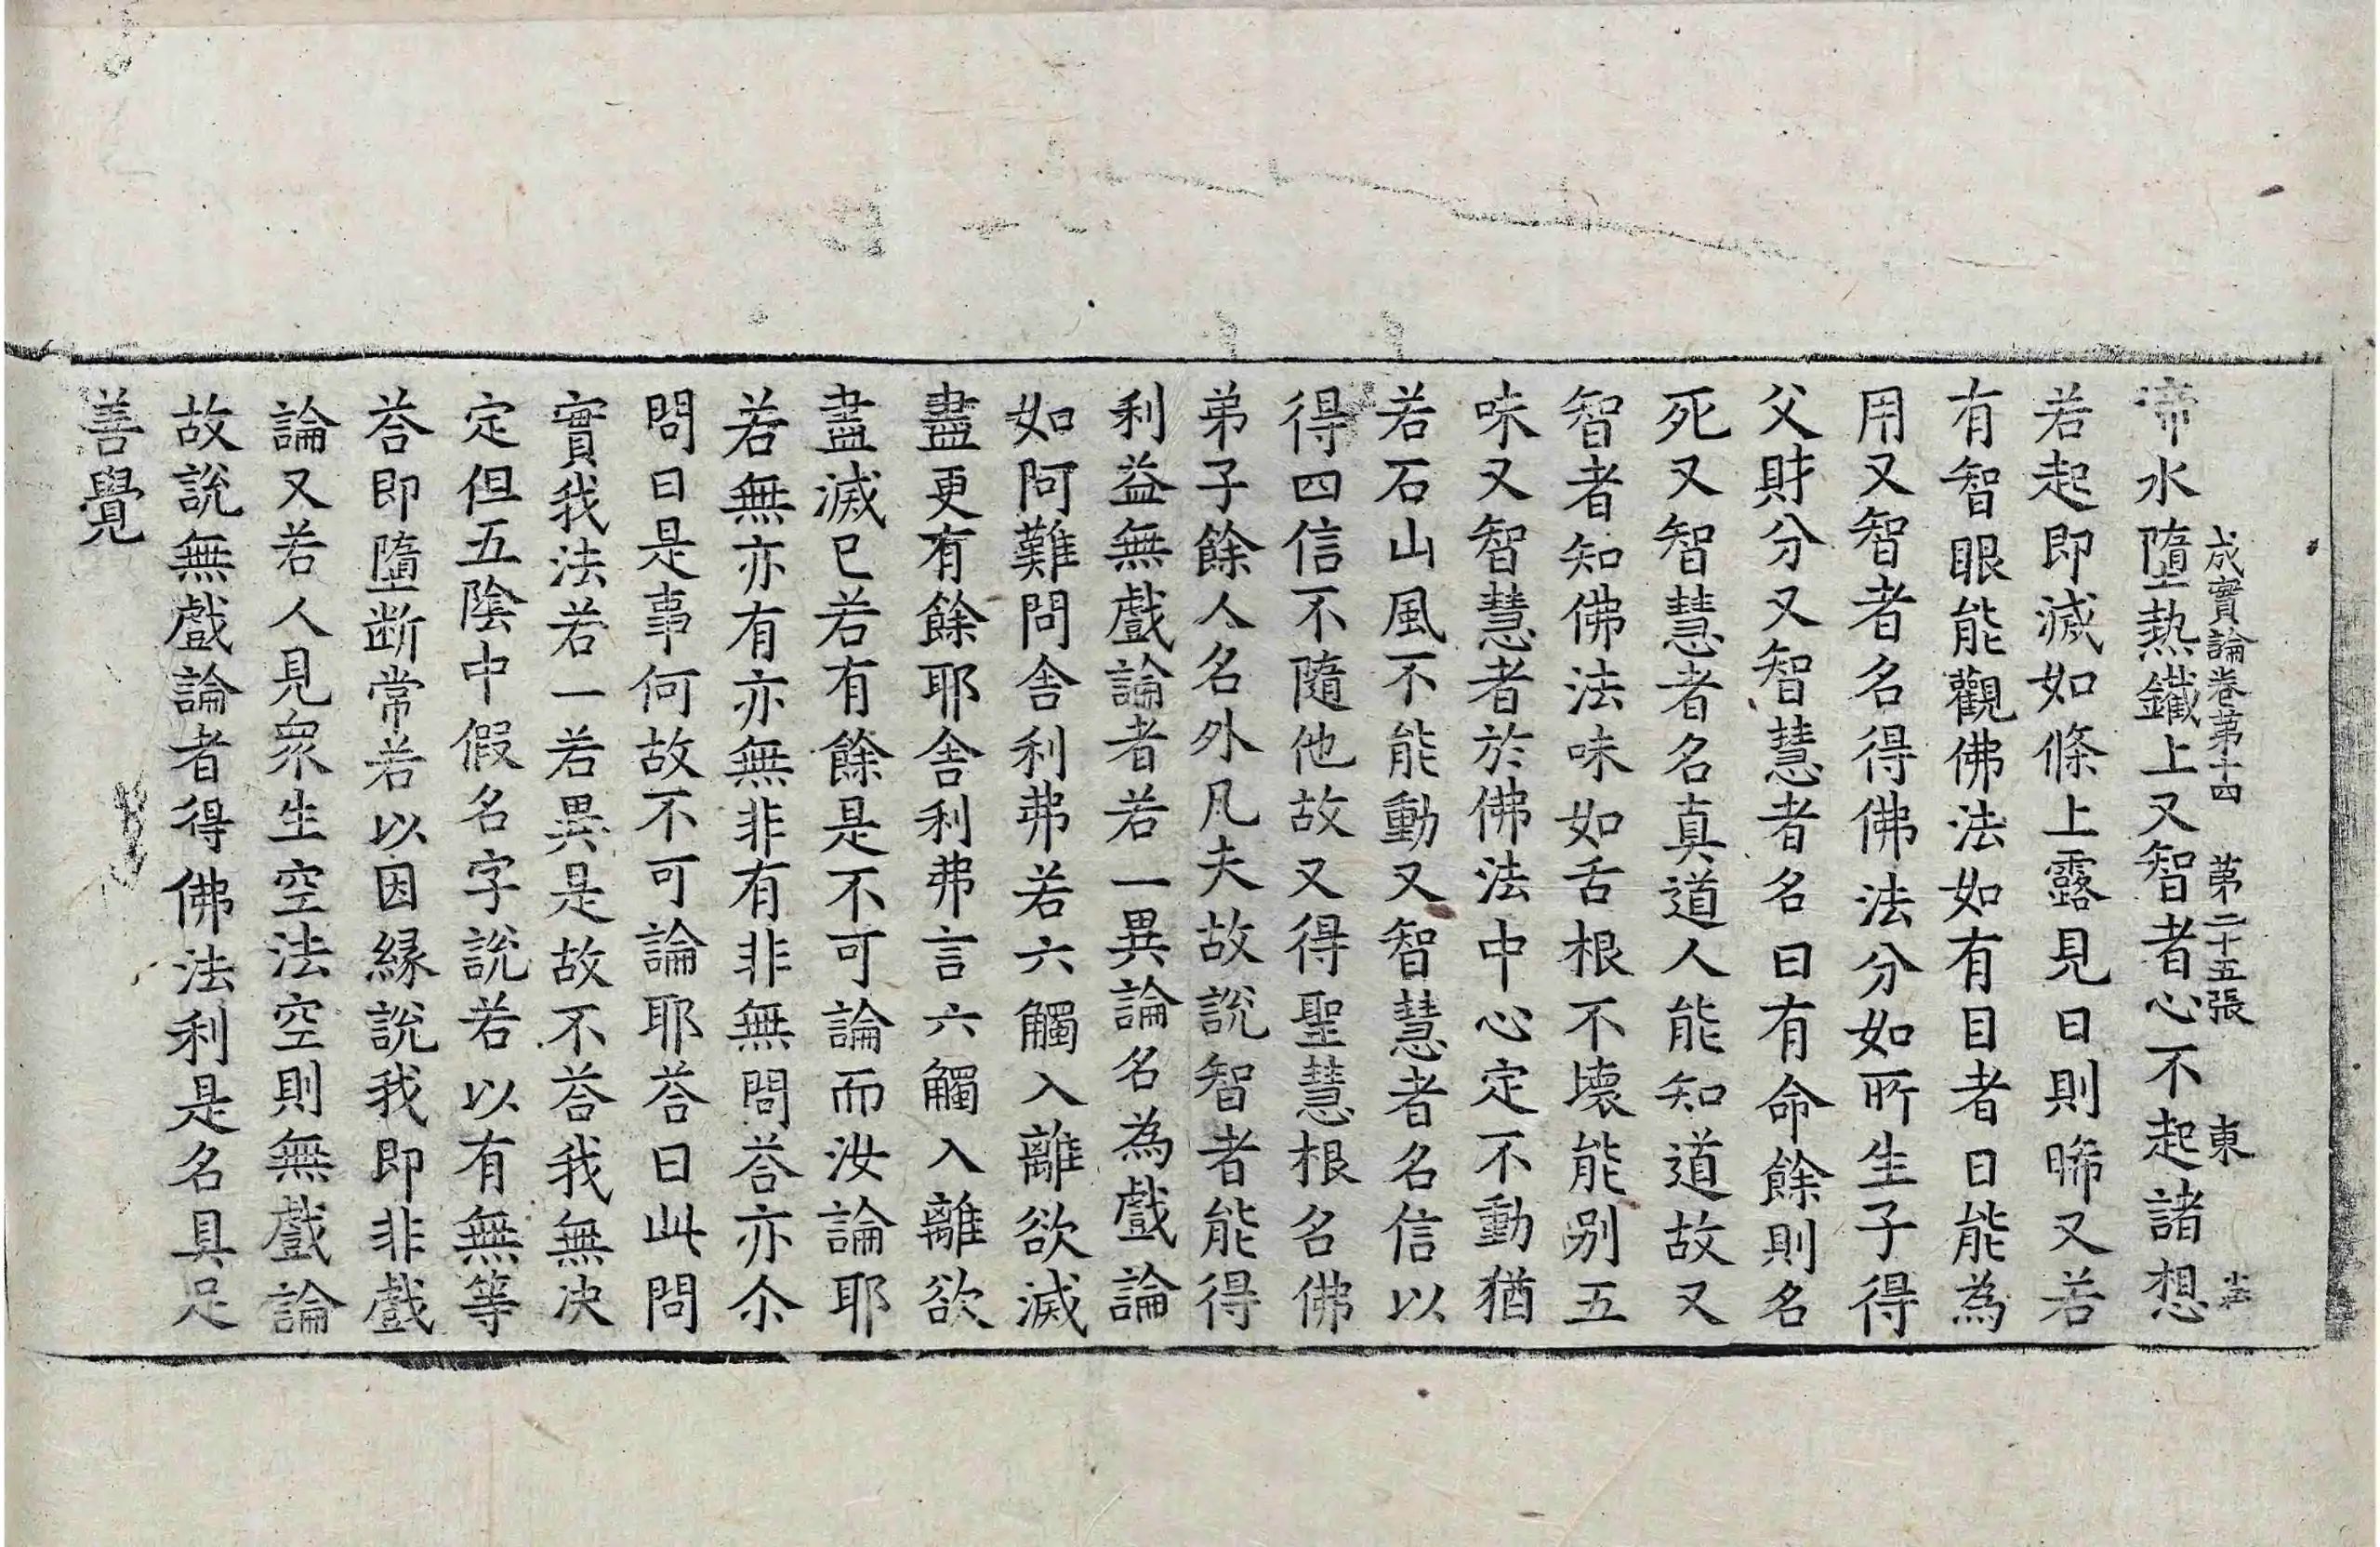 成實論卷第十四 第二十五張 東
渧水墮熱鐵上又智者心不起諸想
若起即滅如條上露見日則晞又若
有智眼能觀佛法如有目者日能為
用又智者名得佛法分如所生子得
父財分又智慧者名曰有命餘則名
死又智慧者名真道人能知道故又
智者知佛法味如舌根不壞能別五
味又智慧者於佛法中心定不動猶
若石山風不能動又智慧者名信以
得四信不隨他故又得聖慧根名佛
弟子餘人名外凡夫故說智者能得
利益無戲論者若一異論名為戲論
如阿難問舍利弗若六觸入離欲滅
盡更有餘耶舍利弗言六觸入離欲
盡滅已若有餘是不可論而汝論耶
若無亦有亦無非有非無問荅亦尒
問曰是事何故不可論耶荅曰此問
實我法若一若異是故不荅我無决
定但五陰中假名字說若以有無等
荅即墮断常若以因緣說我即非戲
論又若人見衆生空法空則無戲論
故說無戲論者得佛法利是名具足
善覺